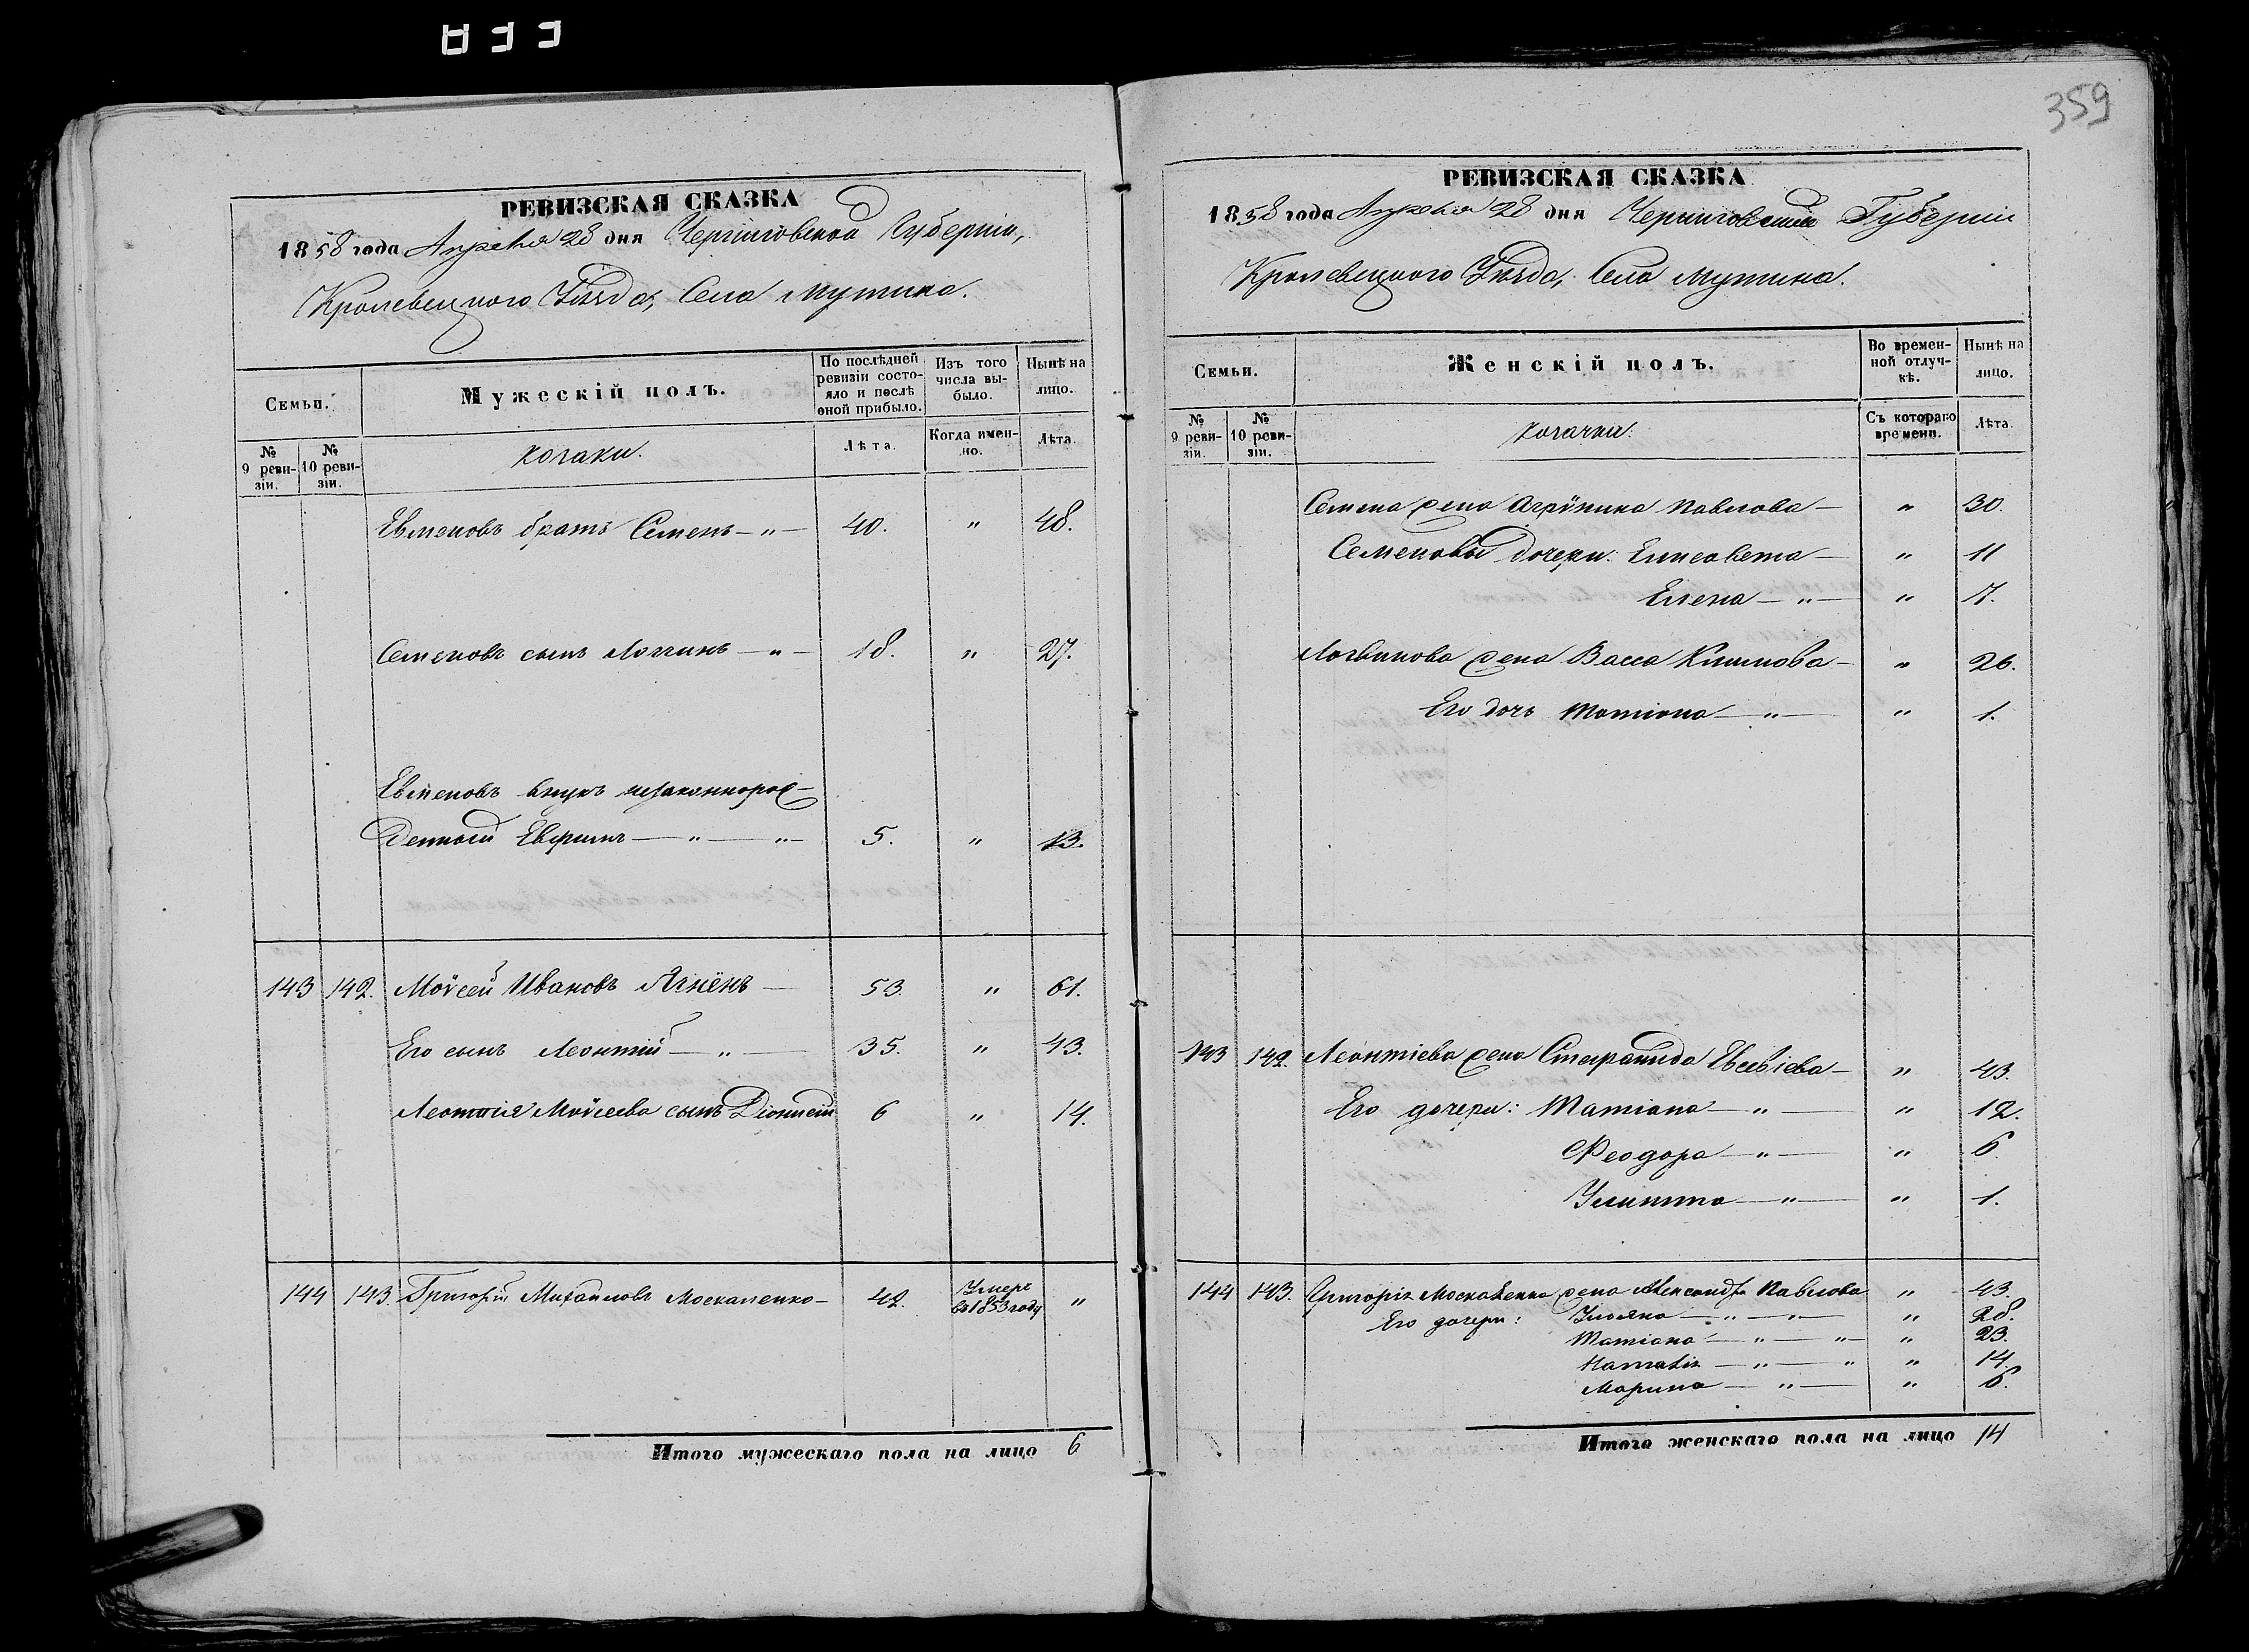 359
РЕВИЗСКАЯ СКАЗКА
1858 года Апреля 28 дня Черниговской Губерніи,
Кролевецкого Уѣзда, Села Мутина.
Семьи.
Мужескій полъ.
По послѣдней ревизіи состояло и послѣ оной прибыло.
Изъ того числа выбыло.
Нынѣ на лицо.
№ 9 ревизіи.
№ 10 ревизіи.
козаки.
Лѣта.
Когда именно.
Лѣта.
Евменовъ братъ Семенъ — " — 40. " 48.
Семеновъ сынъ Логгинъ — " — 18. " 27.
Евменовъ внукъ незаконнорож-
денный Евфимъ — " — " — 5. " 13.
143 142. Моѵсей Ивановъ Ягнёнъ — 53. " 61.
Его сынъ Леонтій — " — 35. " 43.
Леонтія Моѵсеева сынъ Діонисій 6 " 14.
144 143. Григорій Михайловъ Москаленко — 42. Умеръ в 1853 году "
Итого мужескаго пола на лицо 6
РЕВИЗСКАЯ СКАЗКА
1858 года Апреля 28 дня Черниговской Губерніи
Кролевецкого Уѣзда, Села Мутина.
Семьи.
Женскій полъ.
Во временной отлучкѣ.
Нынѣ на лицо.
№ 9 ревизіи.
№ 10 ревизіи.
козачки.
Съ котораго времени.
Лѣта.
Семена жена Агрипина Павлова — " 30.
Семеновы дочери: Елисавета — " 11
Елена — " — " 7.
Логвинова жена Васса Климова — " 26.
Его дочь Татіана — " — " 1.
143 142. Леонтіева жена Стефанида Евсевіева — " 43.
Его дочери: Татіана — " — " 12.
Феодора — " — " 6
Улитта — " — " 1.
144 143. Григорія Москаленка жена Александра Павлова " 43.
Его дочери: Ульяна — " — " — " 28.
Татіана — " — " — " 23.
Наталія — " — " " 14
Марина — " — " 6.
Итого женскаго пола на лицо 14